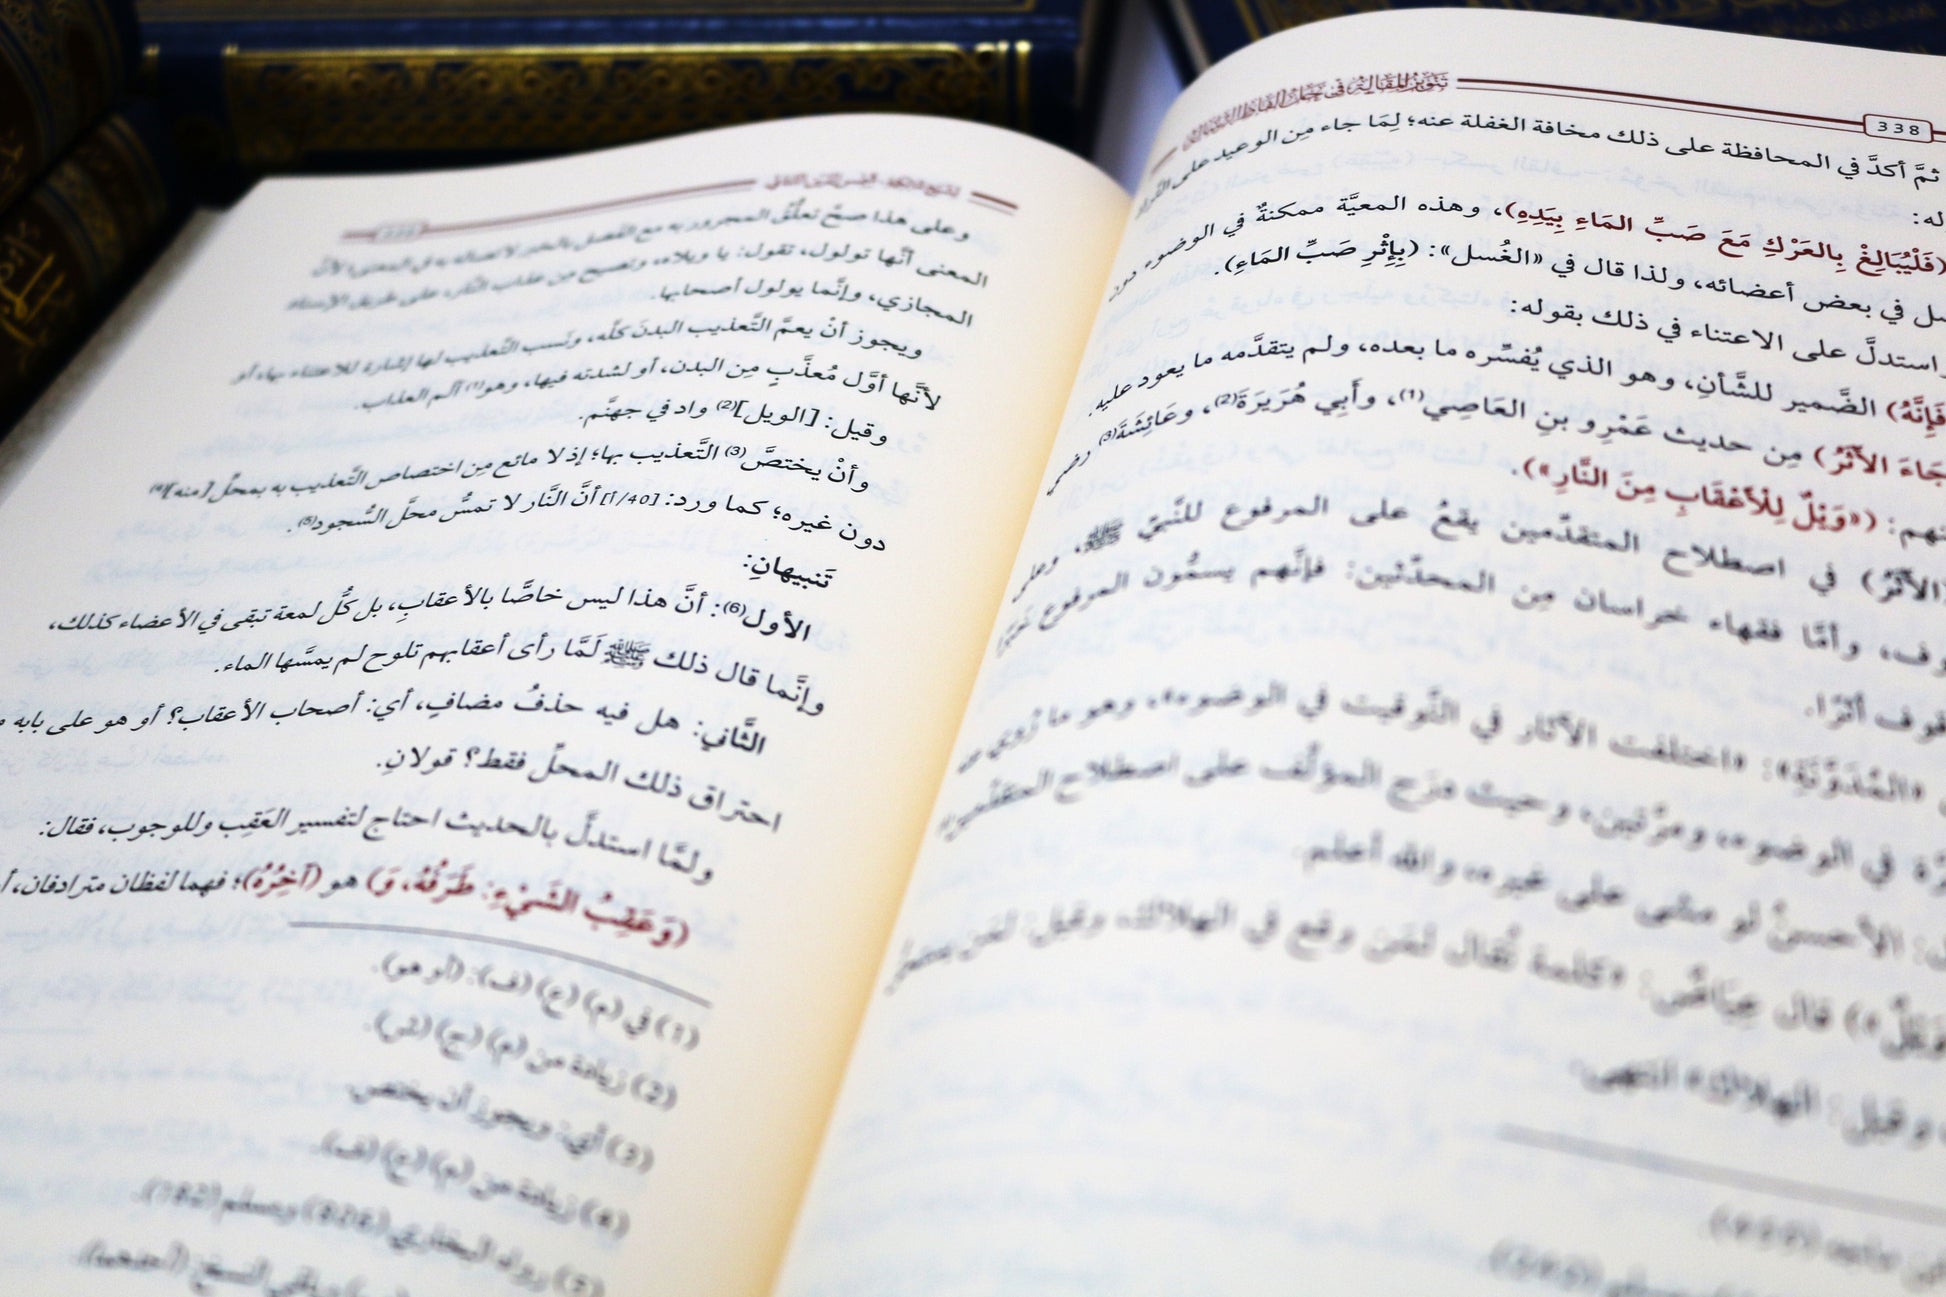 338
تنوير المقالة في حل ألفاظ الرسالة
ثمَّ أكدَّ في المحافظة على ذلك مخافة الغفلة عنه؛ لِمَا جاء مِن الوعيد على
له:
(فَلْيُبَالِغْ بِالعَرْكِ مَعَ صَبِّ المَاءِ بِيَدِهِ)، وهذه المعيَّة ممكنةٌ في الوضوء دون
في بعض أعضائه، ولذا قال في «الغُسل»: (بِإِثْرِ صَبِّ المَاءِ).
استدلَّ على الاعتناء في ذلك بقوله:
فَإِنَّهُ) الضَّمير للشَّأنِ، وهو الذي يُفسِّره ما بعده، ولم يتقدَّمه ما يعود عليه.
جَاءَ الأَثَرُ) مِن حديث عَمْرِو بنِ العَاصِي(1)، وأَبِي هُرَيرَةَ(2)، وعَائِشَةَ(3) رضي
نهم: («وَيْلٌ لِلْأَعْقَابِ مِنَ النَّارِ»).
(الأَثَرُ) في اصطلاح المتقدِّمين يقعُ على المرفوع للنَّبيِّ ﷺ، وعلى
وف، وأمَّا فقهاء خراسان مِن المحدّثين: فإنَّهم يسمُّون المرفوع خبرًا
قوف أثرًا.
«المُدَوَّنَةِ»: «اختلفت الآثار في التَّوقيت في الوضوء»، وهو ما رُوي من
في الوضوء، ومرَّتين، وحيث درَج المؤلِّف على اصطلاح المتقدِّمين
الأحسنُ لو مشى على غيره، والله أعلم.
قال عِيَاضٌ: «كلمة تُقال لمَن وقع في الهلاك، وقيل: لمَن يستحقُّ
وقيل: الهلاك» انتهى.
وعلى هذا صحَّ تعلُّقُ المجرور به مع الفصل بالخبر
المعنى أنَّها تولول، تقول: يا ويلاه، وتصيح من عذاب النَّار، على طريق الإسناد
المجازي، وإنَّما يولول أصحابها.
ويجوز أنْ يعمَّ التَّعذيب البدنَ كلَّه، ونَسب التَّعذيب لها إشارة للاعتناء بها، أو
لأنَّها أوَّل مُعذَّبٍ مِن البدن، أو لشدته فيها، وهو(1) ألم العذاب.
وقيل: [الويل](2) واد في جهنَّم.
وأنْ يختصَّ(3) التَّعذيب بها؛ إذ لا مانع مِن اختصاص التَّعذيب به بمحلٍّ [منه](4)
دون غيره؛ كما ورد: [1/40] أنَّ النَّار لا تمسُّ محلَّ السُّجود(5).
تَنبيهانِ:
الأول(6): أنَّ هذا ليس خاصًّا بالأعقابِ، بل كلُّ لمعة تبقى في الأعضاء كذلك،
وإنَّما قال ذلك ﷺ لَمَّا رأى أعقابهم تلوح لم يمسَّها الماء.
الثَّاني: هل فيه حذفُ مضافٍ، أي: أصحاب الأعقاب؟ أو هو على بابه
احتراق ذلك المحلّ فقط؟ قولانِ.
ولمَّا استدلَّ بالحديث احتاج لتفسير العَقِب وللوجوب، فقال:
(وَعَقِبُ الشَّيْءِ: طَرَفُهُ، وَ) هو (آخِرُهُ)؛ فهما لفظان مترادفان،
(1) في (م) (ع) (ف): (أو هو).
(2) زيادة من (م) (ج)
(3) أي: ويجوز أن يختص.
(4) زيادة من (م) (ع) (ف).
(5) رواه البخاري (806) ومسلم (182).